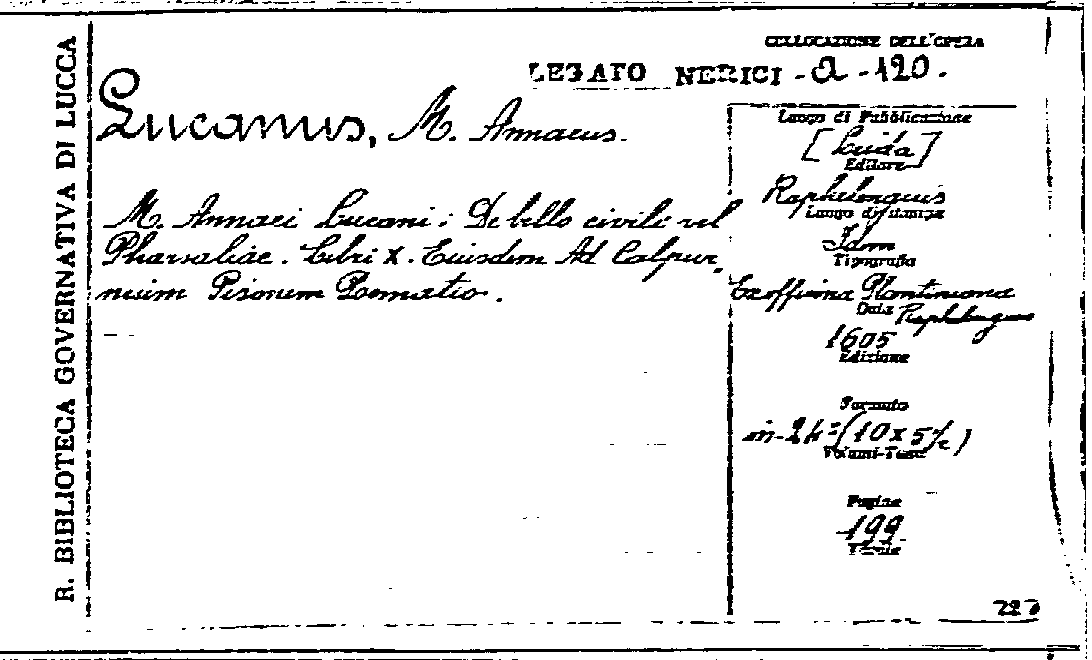 R. BIBLIOTECA GOVERNATIVA DI LUCCA
COLLOCAZIONE DELL'OPERA
LEGATO NERICI - a - 120.
Lucanus, M. Annaeus.
M. Annaei Lucani: De bello civile vel
Pharsaliae. Libri X. Eiusdem Ad Calpur
nium Pisonem Poematio.
Luogo di Pubblicazione
[Leida]
Editore
Raphelengius
Luogo di stampa
Idem
Tipografia
Ex officina Plantiniana
Data
1605
Edizione
Formato
in-24° (10 x 5½)
Volumi-Tomi
Pagine
199